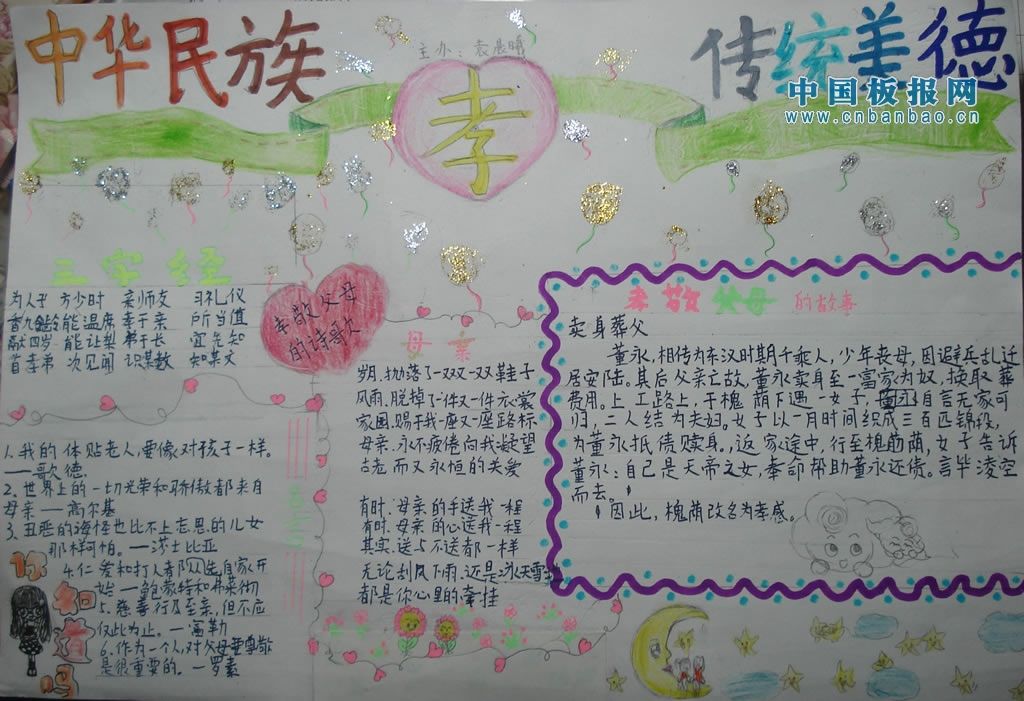 中华民族
传统美德
主办：袁晨曦
孝
中国板报网
www.cnbanbao.cn
三字经
为人子 方少时 亲师友 习礼仪
香九龄 能温席 孝于亲 所当值
融四岁 能让梨 弟于长 宜先知
首孝弟 次见闻 识某数 知某文
孝敬父母
的诗歌
母亲
岁月.抛落了一双又一双鞋子
风雨.脱掉了一件又一件衣裳
家园.赐予我一座又一座路标
母亲.永不疲倦向我凝望
古老而又永恒的关爱
有时.母亲的手送我一程
有时.母亲的心送我一程
其实.送与不送都一样
无论刮风下雨.还是冰天雪地
都是你心里的牵挂
孝敬父母的故事
卖身葬父
董永,相传为东汉时期千乘人,少年丧母,因避兵乱迁
居安陆。其后父亲亡故,董永卖身至一富家为奴,换取葬
费用。上工路上,于槐荫下遇一女子,自言无家可
归,二人结为夫妇。女子以一月时间织成三百匹锦缎,
为董永抵债赎身。返家途中,行至槐荫,女子告诉
董永:自己是天帝之女,奉命帮助董永还债。言毕凌空
而去。
因此,槐荫改名为孝感。
1.我的体贴老人,要像对孩子一样。
——歌德
2.世界上的一切光荣和骄傲都来自
母亲——高尔基
3.丑恶的海怪也比不上忘恩的儿女
那样可怕。——莎士比亚
4.仁爱和打人者都从先自家开
始——鲍蒙特和弗莱彻
5.慈善行及至亲,但不应
仅此为止。——富勒
6.作为一个人,对父母要尊敬
是很重要的。——罗素
你知道吗